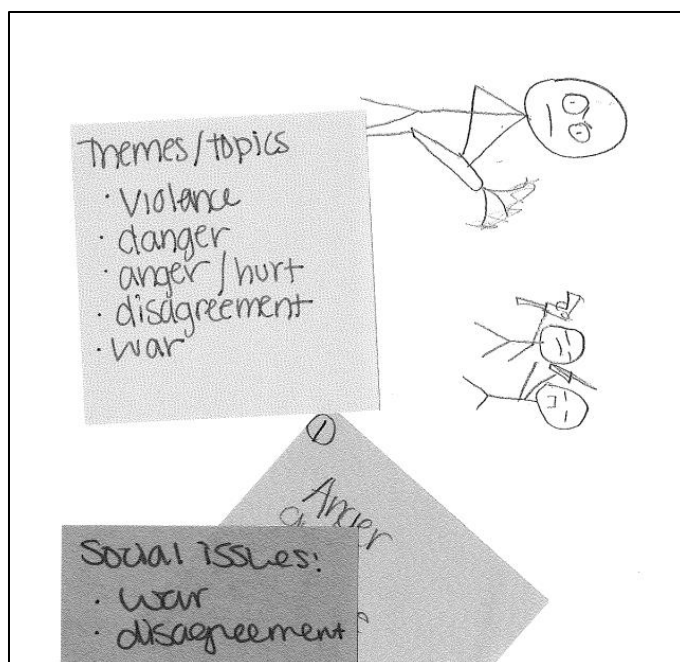 Themes/topics
· Violence
· danger
· anger/hurt
· disagreement
· war
1
Anger
Social Issues:
· war
· disagreement